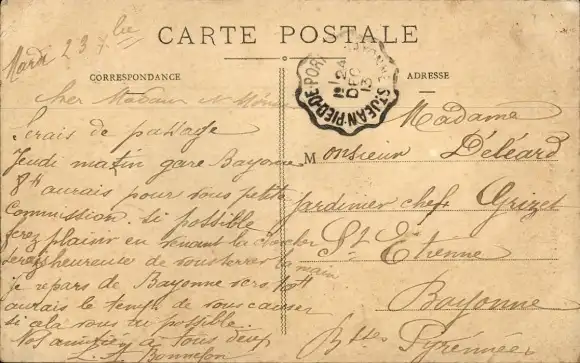 CARTE POSTALE
CORRESPONDANCE
Mardi 23 Xbre
Cher Madame et
Serais de passage
Jeudi matin gare Bayonne
8H aurais pour vous petite
commission. Si possible
ferez plaisir en venant la chercher
serais heureuse de vous serrer la main
je repars de Bayonne vers
aurais le temps de vous causer
si cela vous est possible.
Vos amitiés à tous deux
L. Bonnefon
BAYONNE ST-JEAN-PIED-DE-PORT
24
DEC
13
ADRESSE
Madame
Monsieur Déléard
jardinier chef Grizet
St Etienne
Bayonne
Btes Pyrénnées